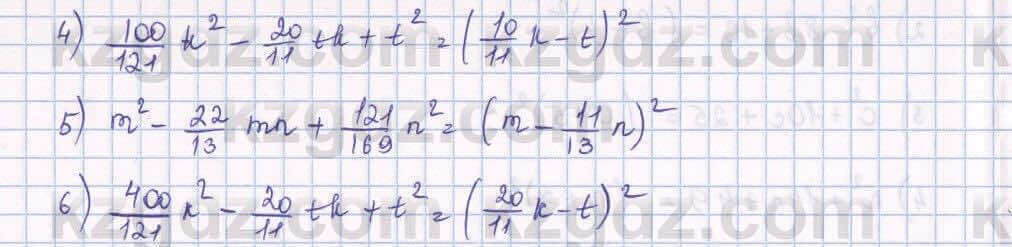 4) 100/121 k² - 20/11 tk + t² = (10/11 k - t)²
5) m² - 22/13 mn + 121/169 n² = (m - 11/13 n)²
6) 400/121 k² - 20/11 tk + t² = (20/11 k - t)²
kzgdz.com